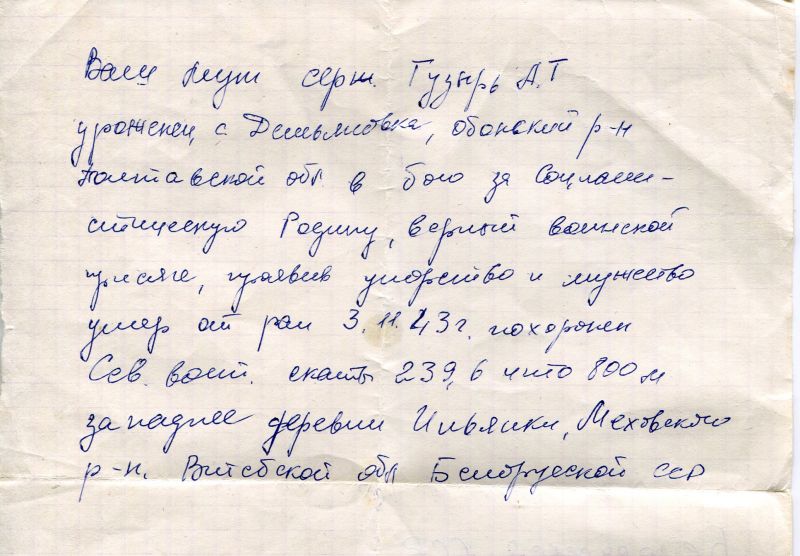 Ваш муж серж. Гузырь А.Т
уроженец с Демьяновка, обонский р-н
Полтавской обл. в бою за Социали-
стическую Родину, верный воинской
присяге, проявив упорство и мужество
умер от ран 3.11.43г. похоронен
Сев. вост. скаты 239,6 что 800 м
западнее деревни Ильянки, Меховского
р-н. Витебской обл Белоруской ССР